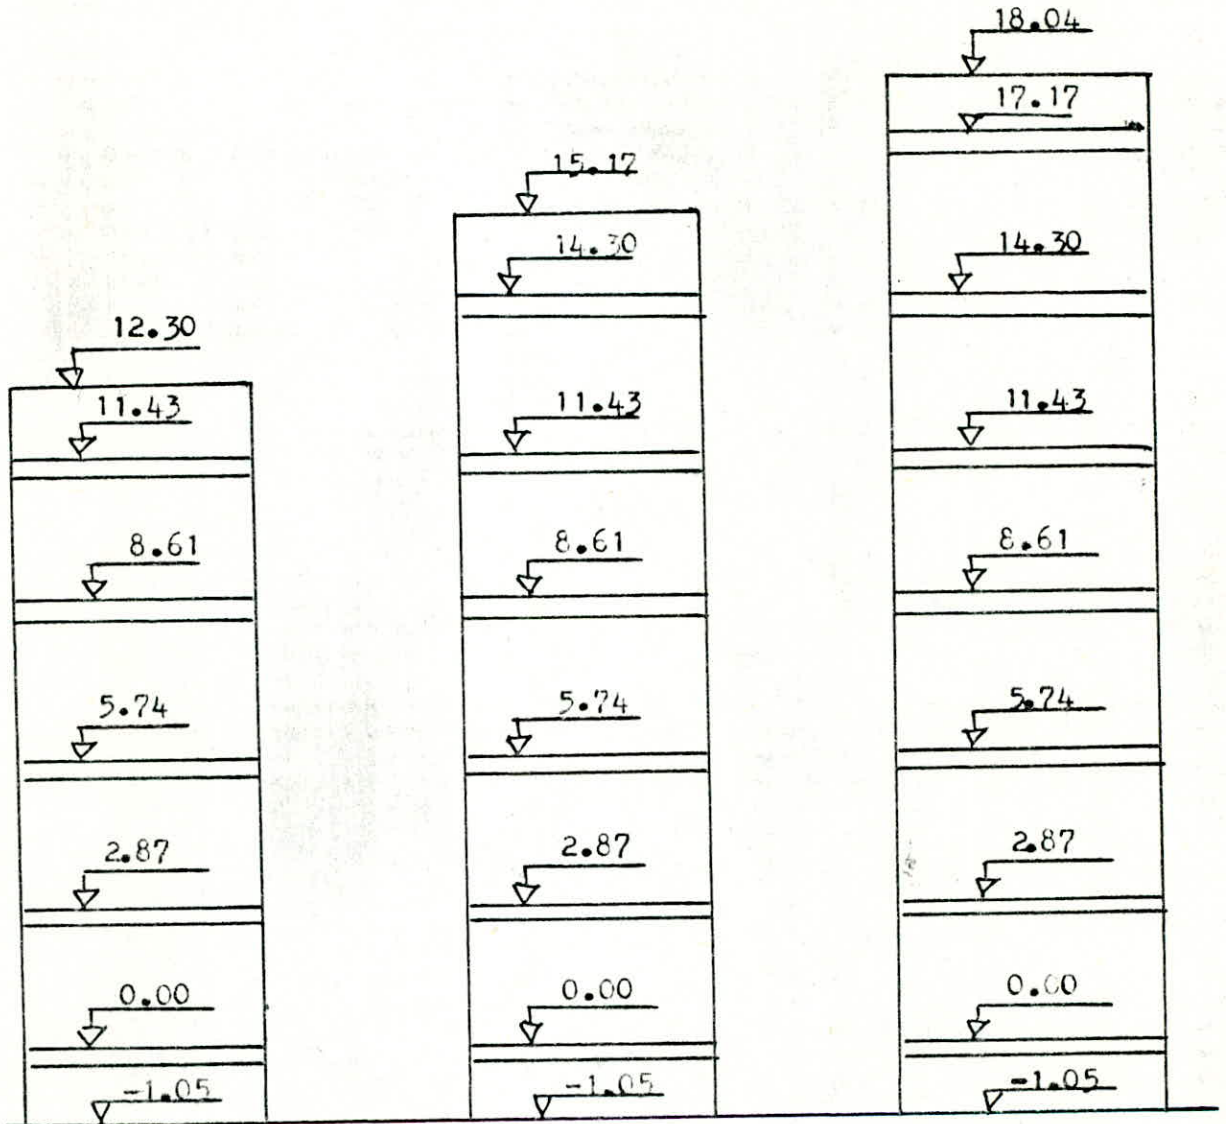 12.30
11.43
8.61
5.74
2.87
0.00
-1.05
15.17
14.30
11.43
8.61
5.74
2.87
0.00
-1.05
18.04
17.17
14.30
11.43
8.61
5.74
2.87
0.00
-1.05